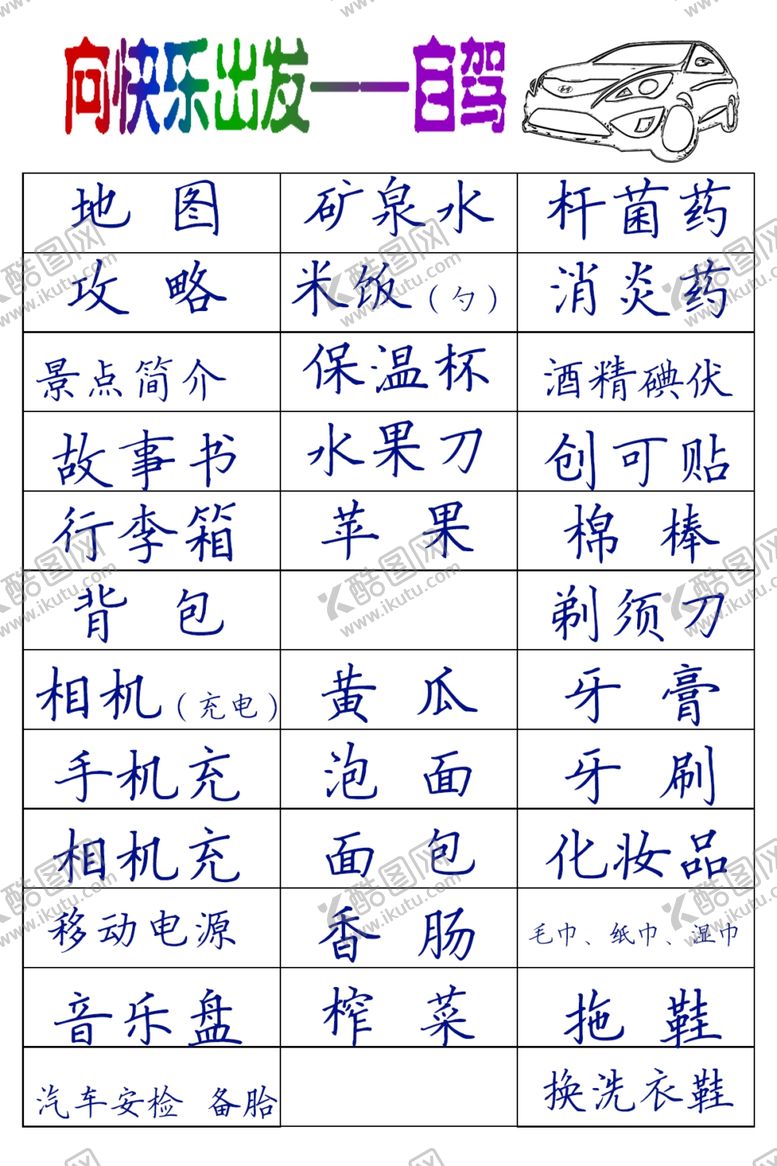 向快乐出发——自驾
地 图 矿泉水 杆菌药
攻 略 米饭（勺） 消炎药
景点简介 保温杯 酒精碘伏
故事书 水果刀 创可贴
行李箱 苹 果 棉 棒
背 包 剃须刀
相机（充电） 黄 瓜 牙 膏
手机充 泡 面 牙 刷
相机充 面 包 化妆品
移动电源 香 肠 毛巾、纸巾、湿巾
音乐盘 榨 菜 拖 鞋
汽车安检 备胎 换洗衣鞋
酷图网
www.ikutu.com